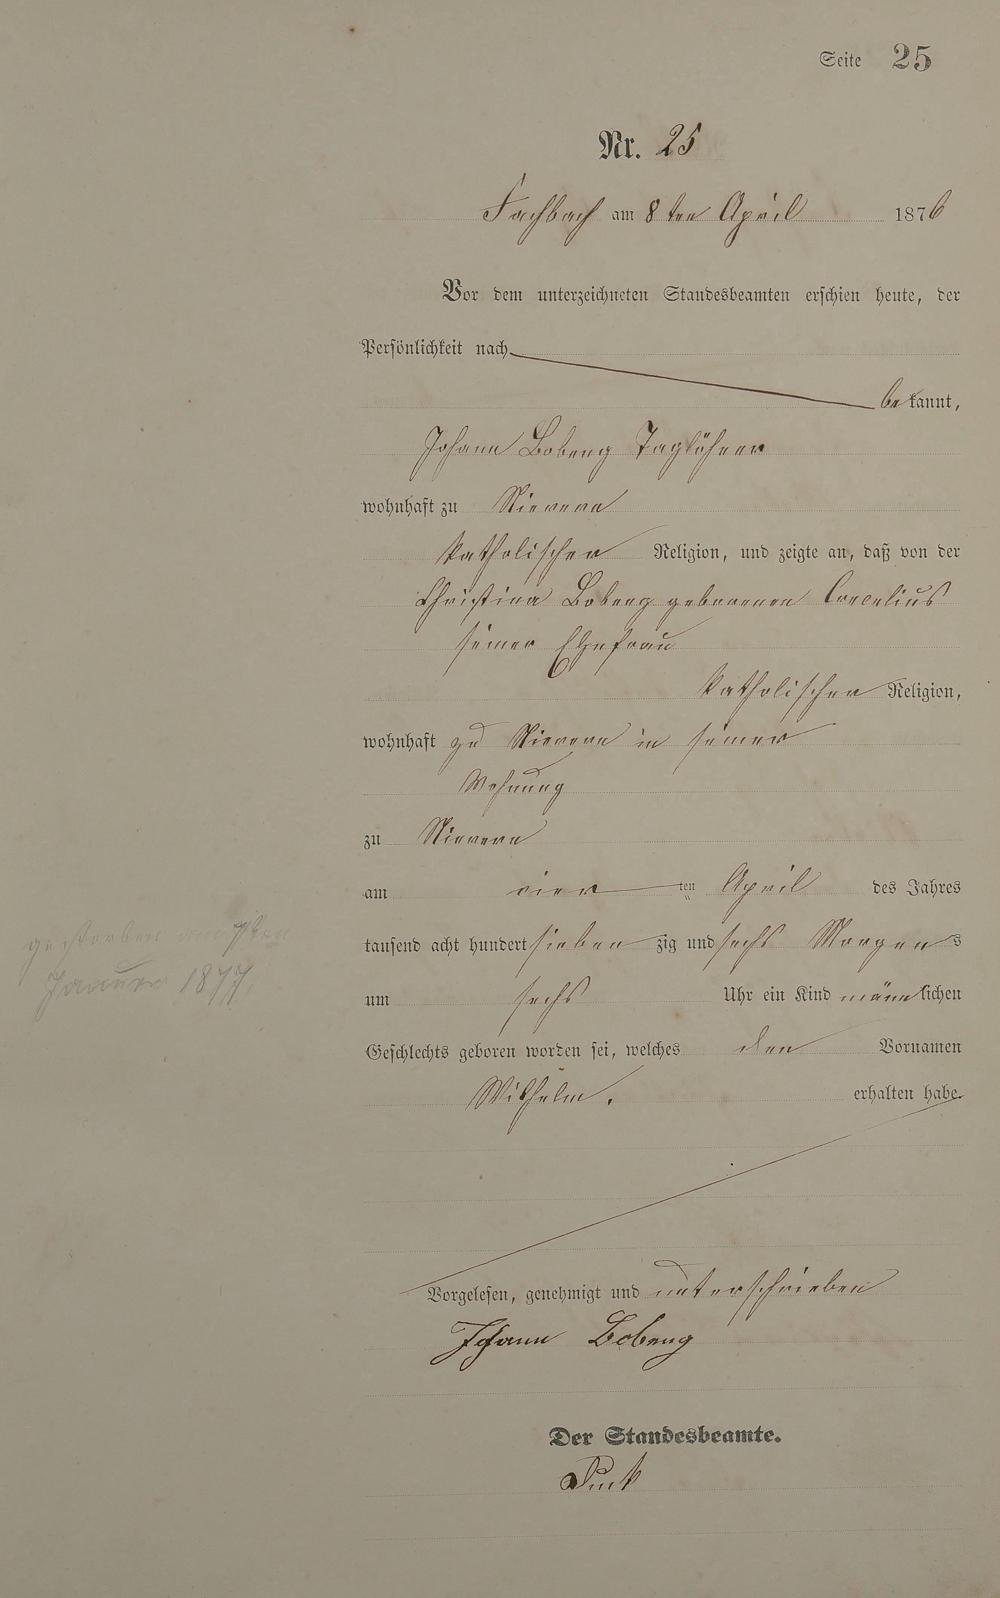 Seite 25
Nr. 25
Fachbach am 8 ten April 1876
Vor dem unterzeichneten Standesbeamten erschien heute, der
Persönlichkeit nach
bekannt,
Johann Bobeng Taglöhner
wohnhaft zu Nievern
katholischer Religion, und zeigte an, daß von der
Christina Bobeng geborenen Cornelius
seiner Ehefrau
katholischer Religion,
wohnhaft zu Nievern in seiner
Wohnung
zu Nievern
am vier ten April des Jahres
tausend acht hundert sieben zig und sechs Morgens
um sechs Uhr ein Kind männlichen
Geschlechts geboren worden sei, welches den Vornamen
Wilhelm. erhalten habe.
gestorben am 7ten
Januar 1877.
Vorgelesen, genehmigt und unterschrieben
Johann Bobeng
Der Standesbeamte.